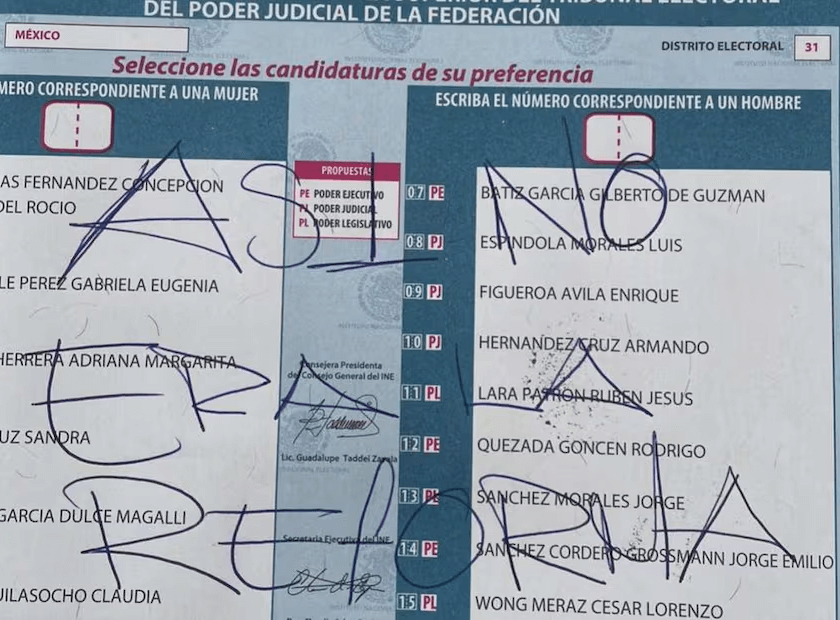 DEL PODER JUDICIAL DE LA FEDERACIÓN
MÉXICO
DISTRITO ELECTORAL 31
Seleccione las candidaturas de su preferencia
CORRESPONDIENTE A UNA MUJER
ESCRIBA EL NÚMERO CORRESPONDIENTE A UN HOMBRE
FERNANDEZ CONCEPCION
DEL ROCIO
PEREZ GABRIELA EUGENIA
HERRERA ADRIANA MARGARITA
SANDRA
GARCIA DULCE MAGALLI
CLAUDIA
PROPUESTAS
PE PODER EJECUTIVO
PJ PODER JUDICIAL
PL PODER LEGISLATIVO
Consejera Presidenta
del Consejo General del INE
Lic. Guadalupe Taddei Zavala
Secretaria Ejecutiva del INE
07 PE BATIZ GARCIA GILBERTO DE GUZMAN
08 PJ ESPINDOLA MORALES LUIS
09 PJ FIGUEROA AVILA ENRIQUE
10 PJ HERNANDEZ CRUZ ARMANDO
11 PL LARA PATRON RUBEN JESUS
12 PE QUEZADA GONCEN RODRIGO
13 PE SANCHEZ MORALES JORGE
14 PE SANCHEZ CORDERO GROSSMANN JORGE EMILIO
15 PL WONG MERAZ CESAR LORENZO
ASI NO
ERA LA
REFORMA